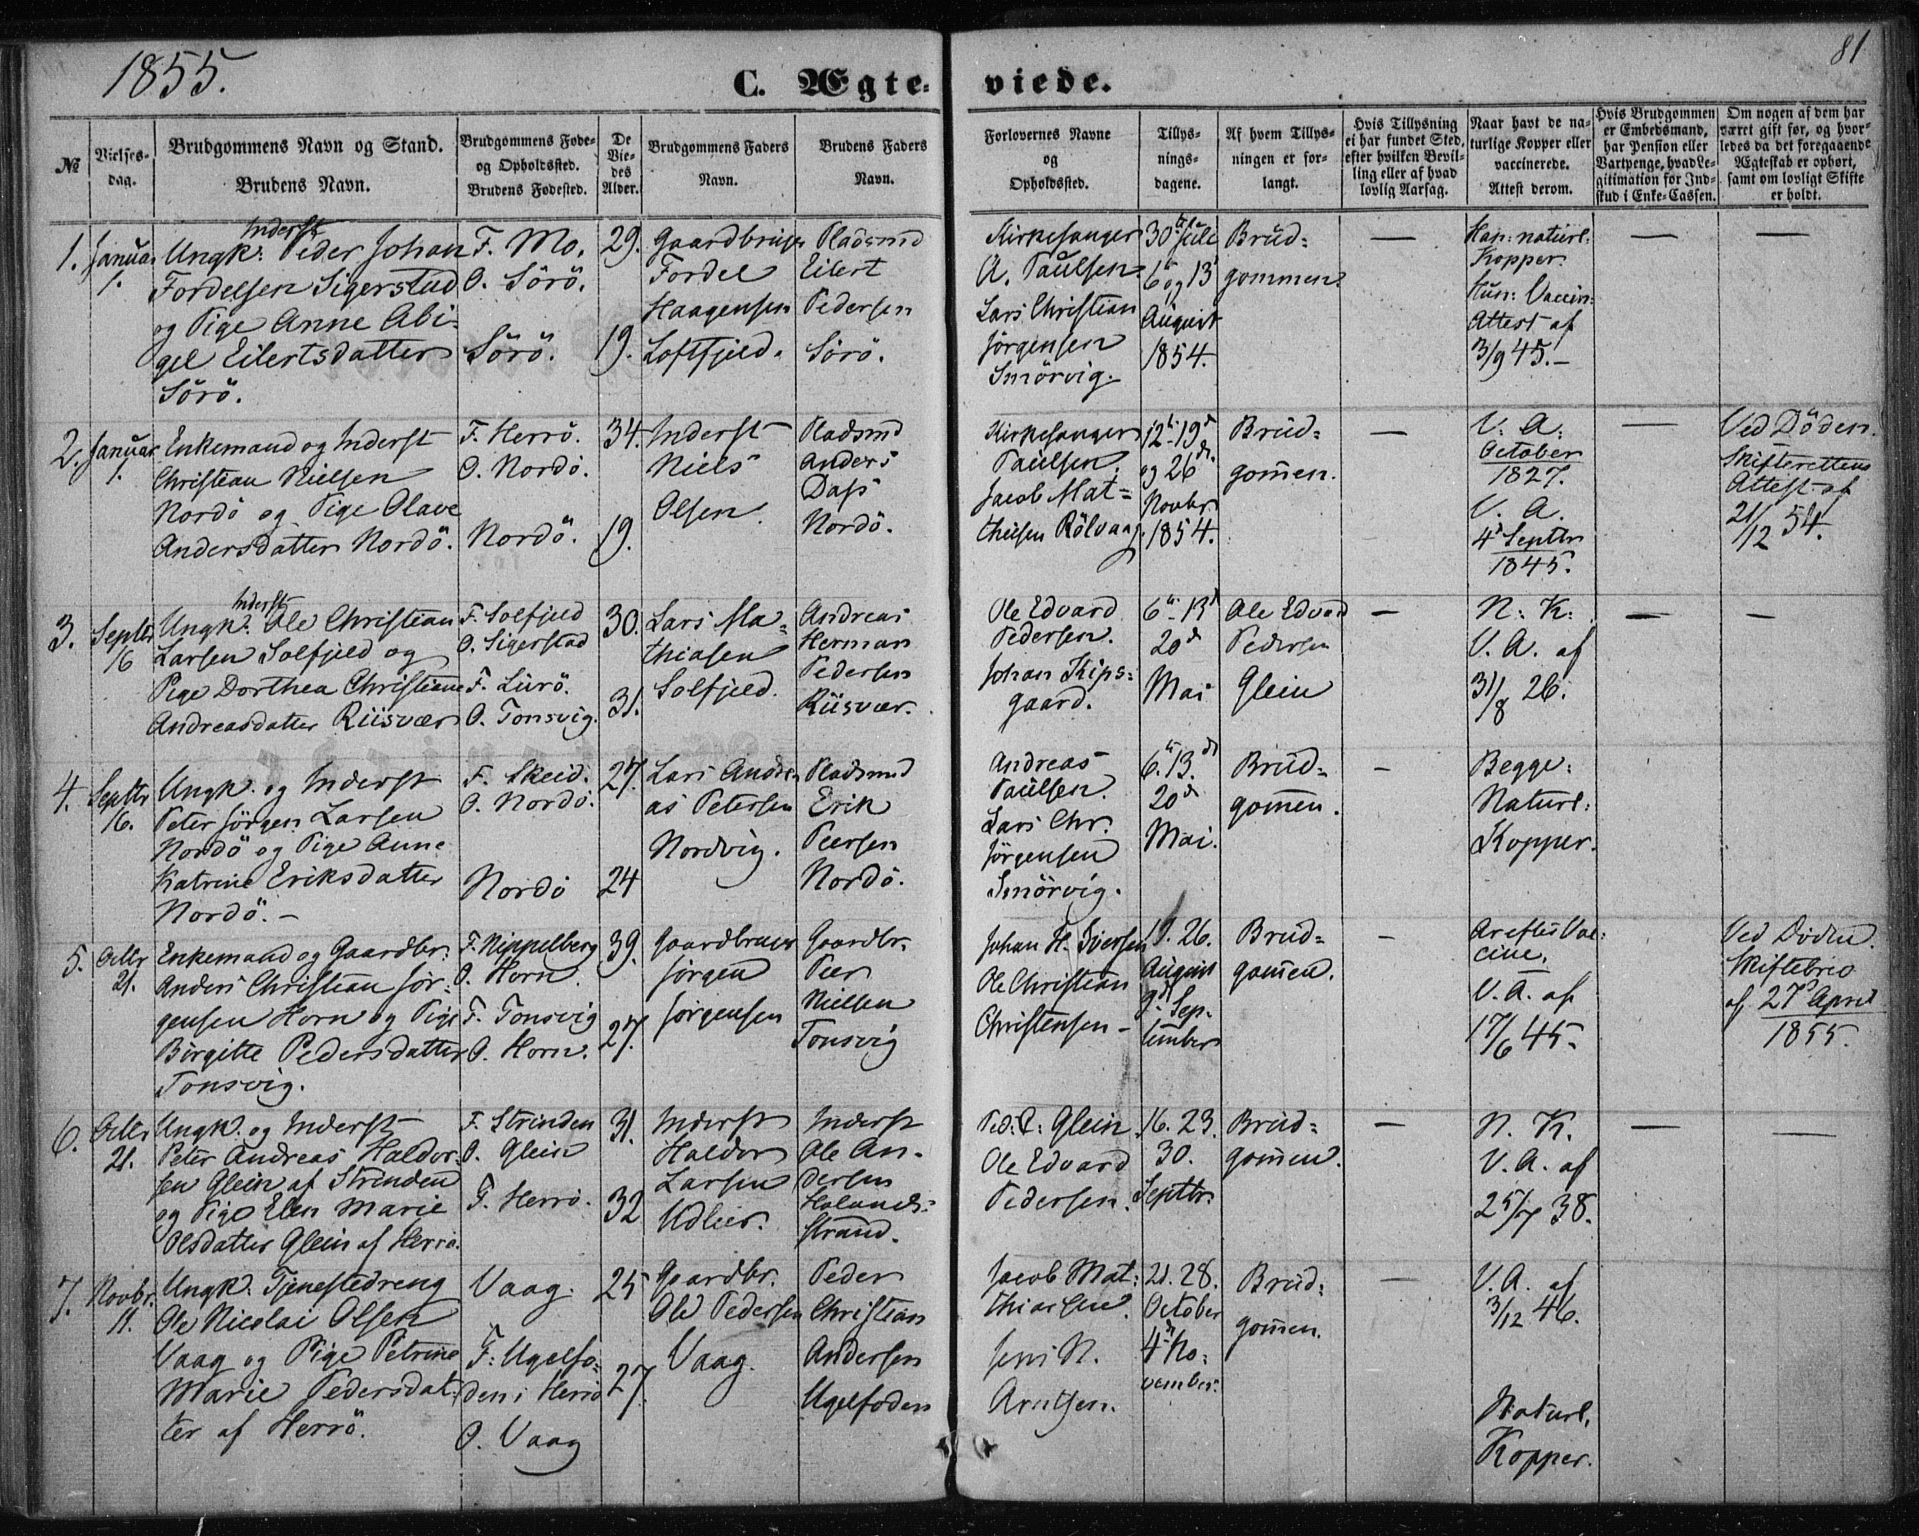 1855.
81
C. Ægteviede.
№
Vielses-
dag.
Brudgommens Navn og Stand.
Brudens Navn.
Brudgommens Føde-
og Opholdssted.
Brudens Fødested.
De
Vie-
des
Alder.
Brudgommens Faders
Navn.
Brudens Faders
Navn.
Forlovernes Navne
og
Opholdssted.
Tillys-
nings-
dagene.
Af hvem Tillys-
ningen er for-
langt.
Hvis Tillysning
ei har fundet Sted,
efter hvilken Bevil-
ling eller af hvad
lovlig Aarsag.
Naar havt de na-
turlige Kopper eller
vaccinerede.
Attest derom.
Hvis Brudgommen
er Embedsmand,
har Pension eller
Vartpenge, hvad Le-
gitimation for Ind-
skud i Enke-Cassen.
Om nogen af dem har
været gift før, og hvor-
ledes da det foregaaende
Ægteskab er ophørt,
samt om lovligt Skifte
er holdt.
1.
Januar
1.
Inderst
Ungk: Peder Johan
Fordelsen Sigerstad
og Pige Anne Abi-
gel Eilertsdatter
Sörö.
F. Mo.
O. Sörö.
Sörö.
29.
19.
Gaardbruger
Fordel
Haagensen
Loftfjeld.
Pladsmd
Eilert
Pedersen
Sörö.
Kirkesanger
A. Paulsen.
Lars Christian
Jörgensen
Smörvig.
30te Juli
6te og 13
August
1854.
Brud=
gommen.
—
Han: naturl:
Kopper.
Hun: Vaccin:
Attest af
3/9 45.—
—
—
2.
Januar
1.
Enkemand og Inderst
Christian Nielsen
Nordö og Pige Olave
Andersdatter Nordö.
F. Herrö.
O. Nordö.
Nordö.
34.
19.
Inderst
Niels
Olsen.
Pladsmd
Anders
Dass
Nordö.
Kirkesanger
Paulsen.
Jacob Mat=
thisen Rölvaag.
12te 19de
og 26de
Novbr
1854.
Brud=
gomen.
—
V. A:
October
1827.
V. A.
4de Septbr
1845.
—
Ved Döden.
Skifterettens
Attest af
21/12 54.
3.
Septbr
16
Inderst
Ungk: Ole Christian
Larsen Solfjeld og
Pige Dorthea Christiane
Andreasdatter Riisvær
F. Solfjeld
O. Sigerstad
F. Lurö.
O. Tonsvig.
30.
31.
Lars Ma=
thiasen
Solfjeld.
Andreas
Herman
Pedersen
Riisvær.
Ole Edvard
Pedersen.
Johan Kips=
gaard.
6te 13de
20de
Mai
Ole Edvard
Pedersen
Glein
—
N: K:
V. A. af
31/8 26.
—
—
4.
Septbr
16.
Ungk. og Inderst
Peter Jörgen Larsen
Nordö og Pige Anne
Katrine Eriksdatter
Nordö.—
F. Skeid.
O. Nordö.
Nordö
27.
24
Lars Andre
as Petersen
Nordvig.
Pladsmd
Erik
Peersen
Nordö.
Andreas
Paulsen.
Lars Chr.
Jörgensen
Smörvig.
6te 13de
20de
Mai.
Brud=
gomen.
-
Begge:
Naturl:
Kopper.
5.
Octbr
21.
Enkemand og Gaardbr:
Anders Christian Jör-
gensen Horn og Pige
Birgitte Pedersdatter
Tonsvig.
F. Nippelberg
O. Horn.
F. Tonsvig
O. Horn.
39.
27.
Gaardbruger
Jörgen
Jörgensen
Gaardbr.
Peer
Nielsen
Tonsvig
Johan H. Iversen
Ole Christian
Christensen—
19. 26.
August
9de Sep-
tember
Brud=
gomen.
-
Ar efter Vac=
cine.
V. A. af
17/6 45.
Ved Döden.
Skiftebrev
af 27de April
1855.
6.
Octbr
21.
Ungk. og Inderst
Peter Andreas Haldor-
sen Glein af Strinden
og Pige Elen Marie
Olsdatter Glein af Herrö.
F. Strinden
O. Glein
F. Herrö.
31.
32
Inderst
Haldor
Larsen
Udlier.
Inderst
Ole An-
dersen
Holands-
strand.
Ped: P: Glein
Ole Edvard
Pedersen.
16. 23.
30.
Septbr.
Brud=
gomen.
—
N. K.
V. A. af
25/7 38.
—
—
7.
Novbr.
11.
Ungk. Tjenestedreng
Ole Nicolai Olsen
Vaag og Pige Petrine
Marie Pedersdat-
ter af Herrö.
Vaag.
F: Ugelfo-
den i Herrö
O. Vaag
25
27.
Gaardbr.
Ole Pedersen
Vaag.
Peder
Christian
Andersen
Ugelfoden
Jacob Mat=
thiasen.
Jens N.
Arntsen.
21. 28.
October
4de No-
vember.
Brud=
gomen.
—
V. A. af
3/12 46.
Naturl.
Kopper.